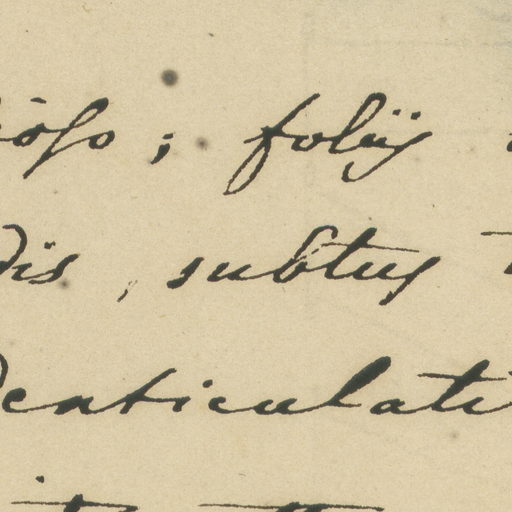 ioso ; foliis
dis , subtus
denticulati